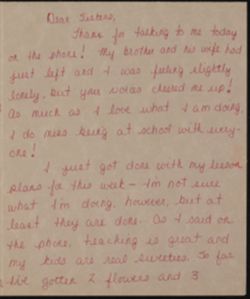 Dear Sisters,
Thanks for talking to me today
on the phone! My brother and his wife had
just left and I was feeling slightly
lonely, but your voices cheered me up!
As much as I love what I am doing,
I do miss being at school with every-
one!
I just got done with my lesson
plans for this week - I'm not sure
what I'm doing, however, but at
least they are done. As I said on
the phone, teaching is great and
my kids are real sweeties. So far
I've gotten 2 flowers and 3